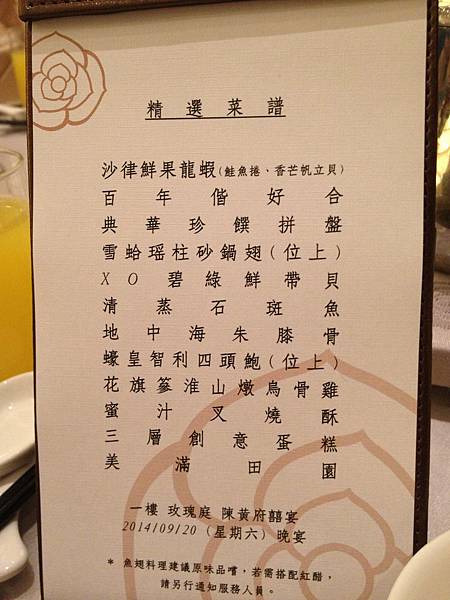 精選菜譜
沙律鮮果龍蝦(鮭魚捲、香芒帆立貝)
百年偕好合
典華珍饌拼盤
雪蛤瑤柱砂鍋翅(位上)
XO碧綠鮮帶貝
清蒸石斑魚
地中海朱膝骨
蠔皇智利四頭鮑(位上)
花旗蔘淮山燉烏骨雞
蜜汁叉燒酥
三層創意蛋糕
美滿田園
一樓 玫瑰庭 陳黃府囍宴
2014/09/20 (星期六) 晚宴
* 魚翅料理建議原味品嚐，若需搭配紅醋，
請另行通知服務人員。